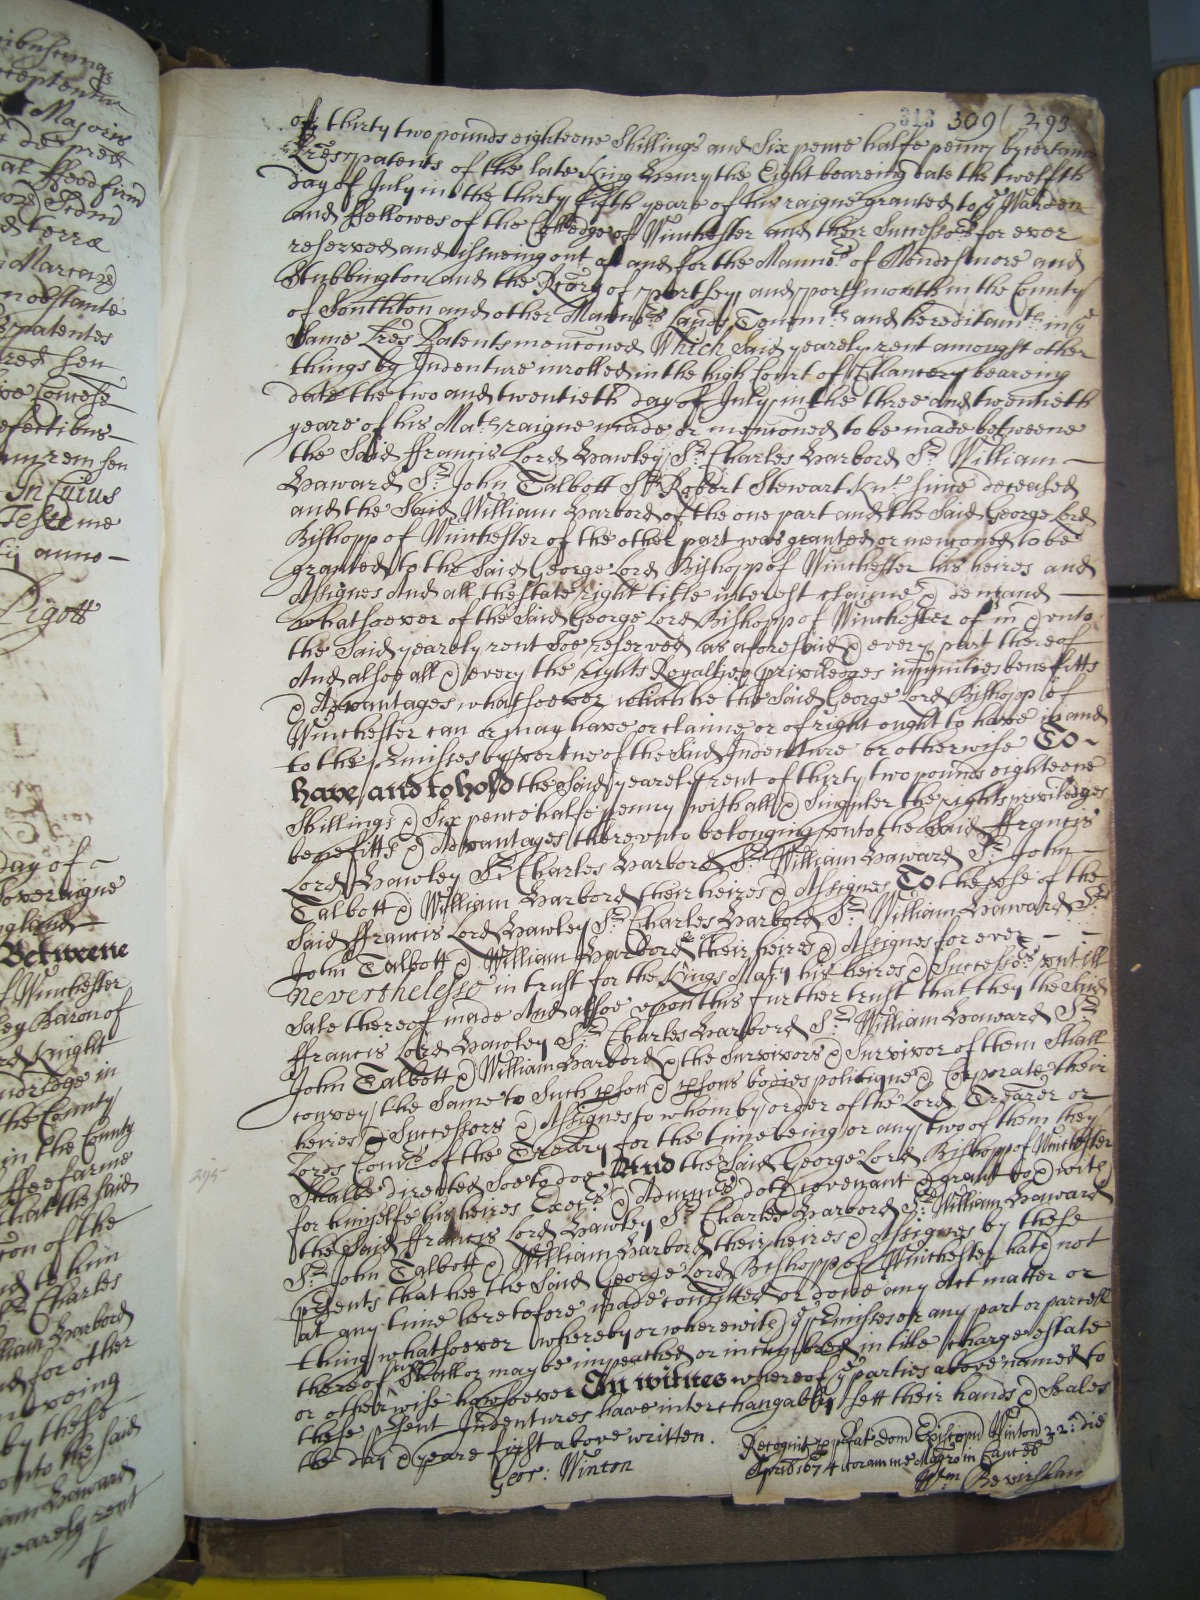 ibuscunq
Majoris
de pred
al ffeod firm
terra
non obstante
patentes
sen
In Cuius
Teste me
anno —
Pigott
day of —
Soveraigne
England —
Betweene
of Winchester
Baron of
Knight
in
the County
in the County
ffee farme
that the said
of the
to him
Charles
William Harbord
and for other
by these —
unto the said
William Haward
yearely rent
313 309 293
of thirty two pounds eighteene Shillings and Six pence halfe penny by certaine
Lres patents of the late King Henry the Eight beareing date the twelfth
day of July in the thirty fifth yeare of his raigne granted to ye Warden
and ffellowes of the Colledge of Winchester and their Successors for ever
reserved and issueing out of and for the Mannors of Mondesmore and
Stubbington and the Rcory of Portsey and Portsmouth in the County
of Southton and other Mannors Lands Tenemts and hereditamts in ye
Same Lres Patents mencioned Which Said yearely rent amongst other
things by Indenture inrolled in the high Court of Chancery beareing
date the two and twentieth day of July in the three and twentieth
yeare of his Mats raigne made or mencioned to be made betweene
the Said ffrancis Lord Hawley Sr Charles Harbord Sr William —
Haward Sr John Talbott Sr Robert Stewart Knt since deceased
and the Said William Harbord of the one part and the Said George Lord
Bishopp of Winchester of the other part was granted or mencioned to be
granted to the Said George Lord Bishopp of Winchester his heires and
Assignes And all the estate right title interest claime & demand —
whatsoever of the Said George Lord Bishopp of Winchester of in & unto
the Said yearely rent Soe reserved as aforesaid & every part thereof
And alsoe all & every the rights Royalties priviledges imunities benefitts
& Advantages whatsoever which he the Said George Lord Bishopp of
Winchester can or may have or claime or of right ought to have in and
to the pmisses by vertue of the Said Indenture or otherwise To ~
have and to hold the Said yearely rent of thirty two pounds eighteene
Shillings & Six pence halfe penny with all & Singuler the rights priviledges
benefitts & Advantages thereunto belonging unto the Said ffrancis
Lord Hawley Sr Charles Harbord Sr William Haward Sr John —
Talbott & William Harbord their heires & Assignes To the use of the
Said ffrancis Lord Hawley Sr Charles Harbord Sr William Haward Sr
John Talbott & William Harbord their heires & Assignes for ever — —
Neverthelesse in trust for the Kings Maty his heires & Successors untill
Sale thereof made And alsoe upon this further trust that they the Said
ffrancis Lord Hawley Sr Charles Harbord Sr William Haward Sr
John Talbott & William Harbord & the Survivors & Survivor of them Shall
convey the Same to Such pson & psons bodies politique & Corporate their
heires & Successors & Assignes to whom by order of the Lord Treārer or
Lords Comrs of the Treāry for the time being or any two of them they
Shalbe directed Soe to doe And the Said George Lord Bishopp of Winchester
for himselfe his heires Execrs & Adminrs doth covenant & grant to & with
the Said ffrancis Lord Hawley Sr Charles Harbord Sr William Haward
Sr John Talbott & William Harbord their heires & Assignes by these
psents that hee the Said George Lord Bishopp of Winchester hath not
at any time heretofore made comitted or done any Act matter or
thing whatsoever whereby or wherewith ye pmisses or any part or parcell
thereof Shall or may be impeached or incumbred in title charge estate
or otherwise howsoever In witnes whereof ye parties above named to
these psent Indentures have interchangably sett their hands & Seales
the day & yeare first above written.
Geor: Winton
Recognit p pfat Dom Episcopū Winton 22o die
Aprilis 1674 coram me Magro in Canc
Wm
295